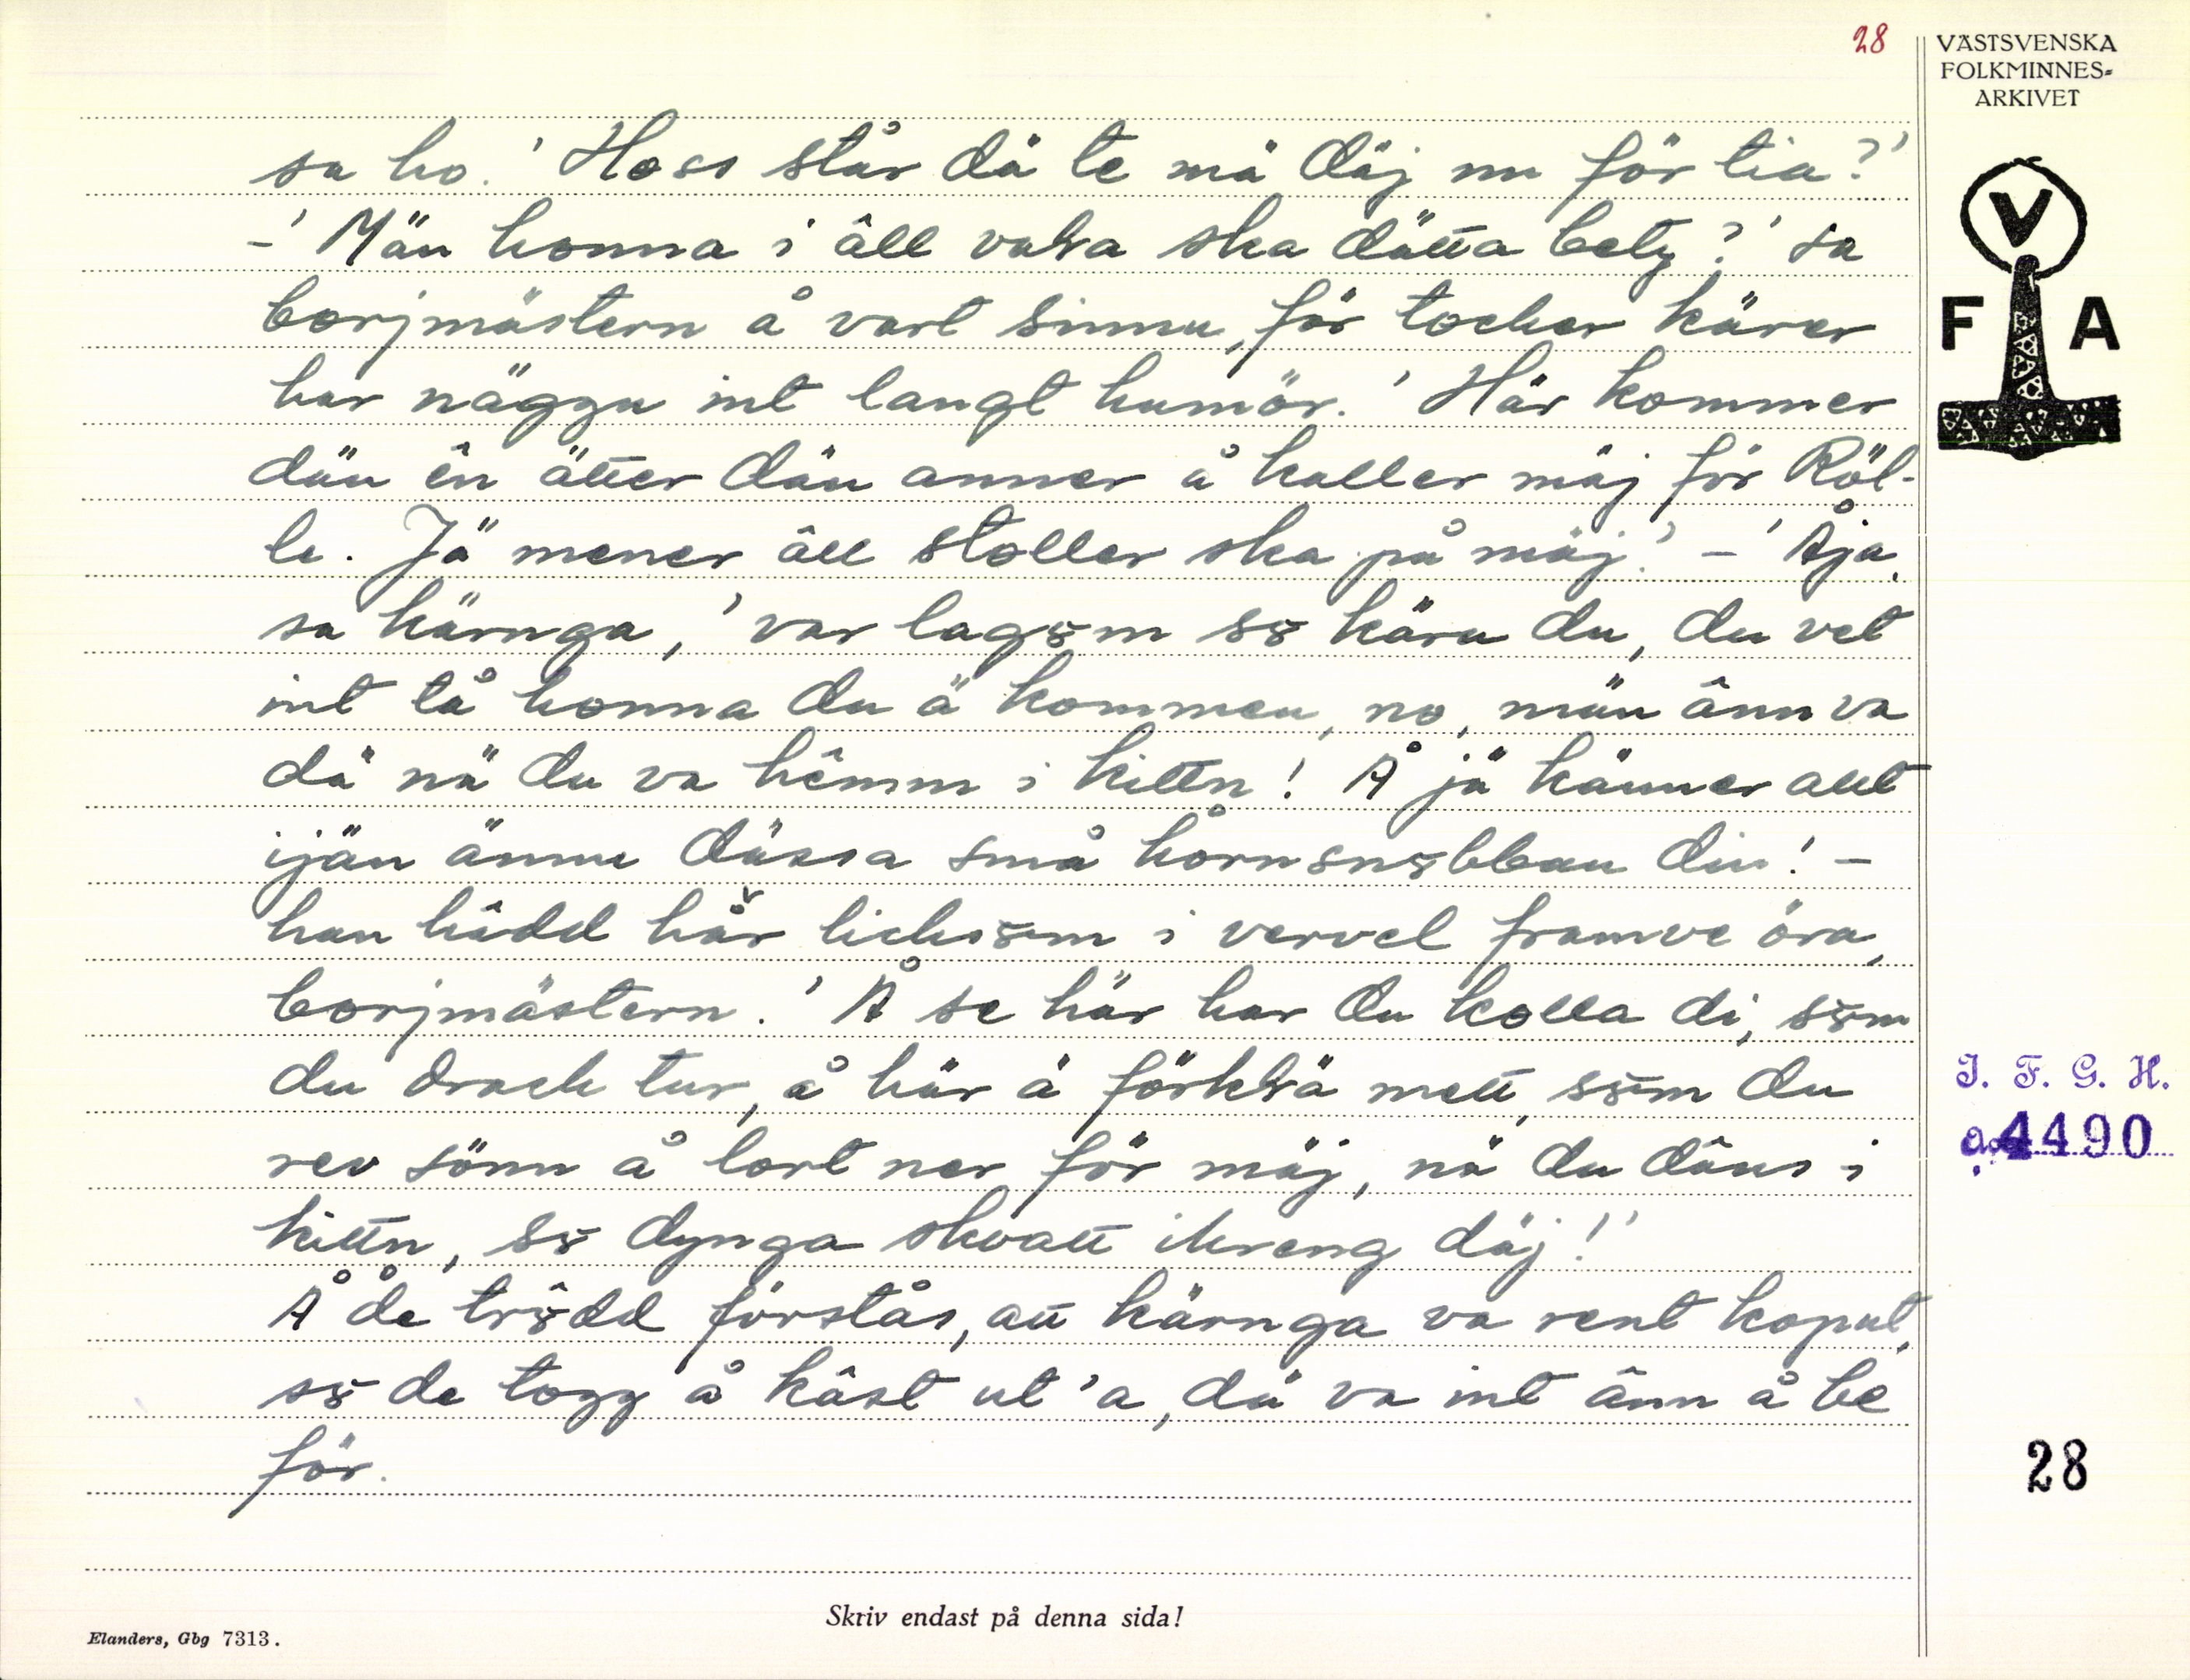 28
VÄSTSVENSKA
FOLKMINNES-
ARKIVET
V
F A
sa ho. 'Hoss står dä te mä däj nu för tia?'
–' Män honna i äll valsa ska dätta bety?' sa
borjmästern å vart sinnu, för tocker kärer
har näggu int langt humör. 'Här kommer
dän ên ätter dän anner å kaller mäj för Röl-
le. Jä mener äll stoller ska på mäj!' –' Åja,
sa kärnga, 'var lagom so käru du, du vet
int tå honna du ä kommen, no, män änn va
dä nä du va hêmm i kittn! Å jä känner allt
ijän ännu dässa små hårnsnobban din! –
han hâdd hår lickasom i vervel framve öra,
borjmästern. 'Å se här har du kolla di, som
du drack tur, å här ä förklsä mett, som du
rev sönn å lort ner för mäj, nä du dâns i
kittn, so dynga skvatt ikreng däj!'
Å de trodd förstås, att kärnga va rent koput,
so de togg å kâst ut 'a, dä va int änn å be
för.
I. F. G. H.
a. 4490
28
Skriv endast på denna sida!
Elanders, Gbg 7313.